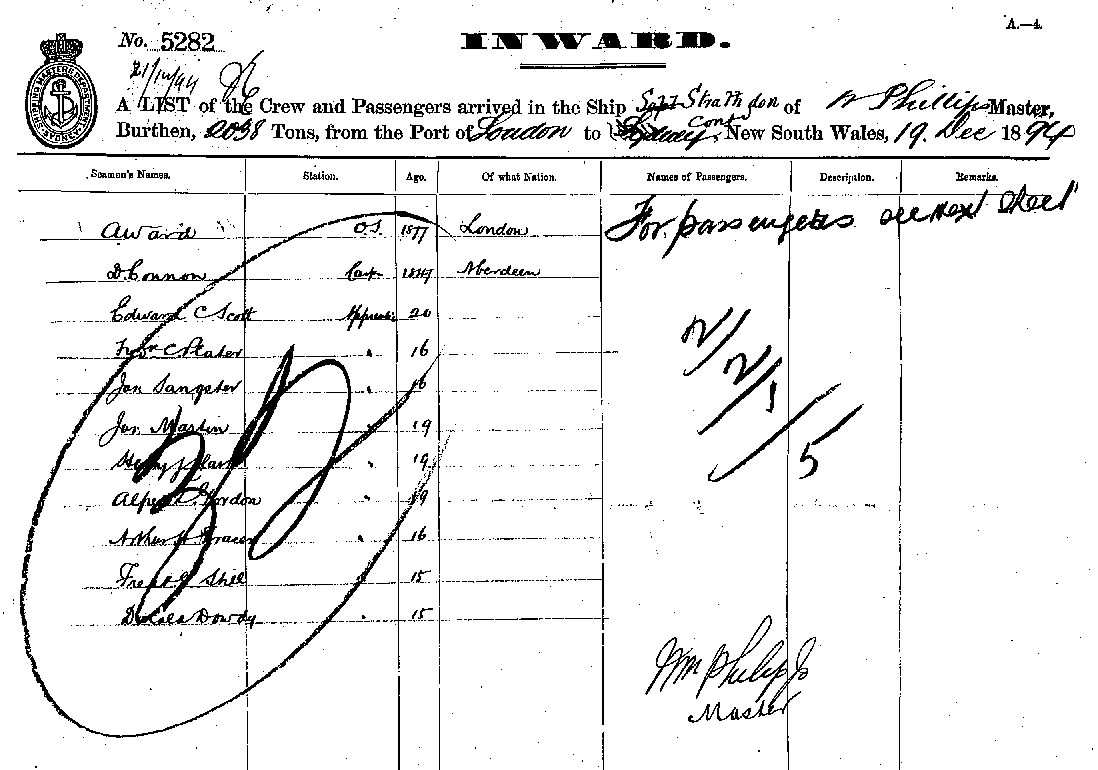 A.—4.
No. 5282
INWARD.
21/12/94
A LIST of the Crew and Passengers arrived in the Ship Strathdon of W Phillips Master,
Burthen, 2038 Tons, from the Port of London to Sydney, New South Wales, 19. Dec 1894
Seamen's Names. Station. Age. Of what Nation. Names of Passengers. Description. Remarks.
A Ward O.S. 1877 London For passengers see next sheet
D. Connon Carp. 1847 Aberdeen
Edward C Scott Apprentice 20
16
Jas Sangster " 16
Jas Martin " 19
Henry J Clark " 19
Alfred Gordon " 19
Arthur " 16
Shee " 15
Dowdy " 15
30
2/
2/1
/5
Wm Philip Jr
Master